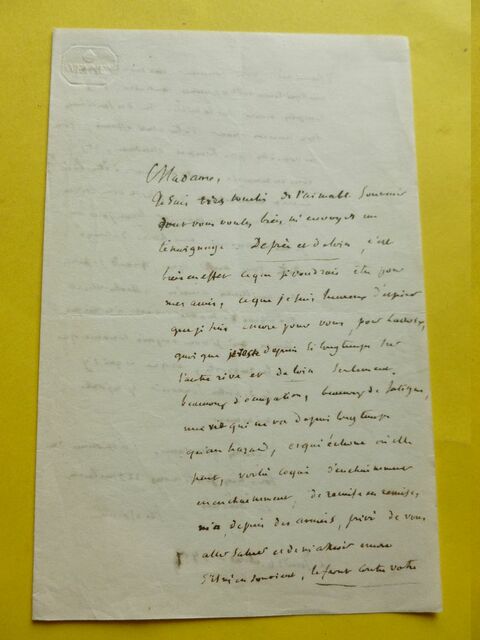 Madame,
Je suis très touché de l'aimable souvenir
dont vous voulez bien m'envoyer un
témoignage. De près et de loin, c'est
bien en effet ce que je voudrais être pour
mes amis, ce que je suis heureux d'espérer
que je suis encore pour vous, pour
quoique je reste depuis si longtemps sur
l'autre rive et de loin seulement.
beaucoup d'occupations, beaucoup de fatigue,
une vie qui ne va depuis longtemps
qu'au hazard, et qui échoue où elle
peut, voilà ce qui d'enchaînement
en enchaînement, de remise en remise,
m'a, depuis des années, privé de vous
aller saluer et de m'asseoir encore
s'il m'en souvient, le front contre votre